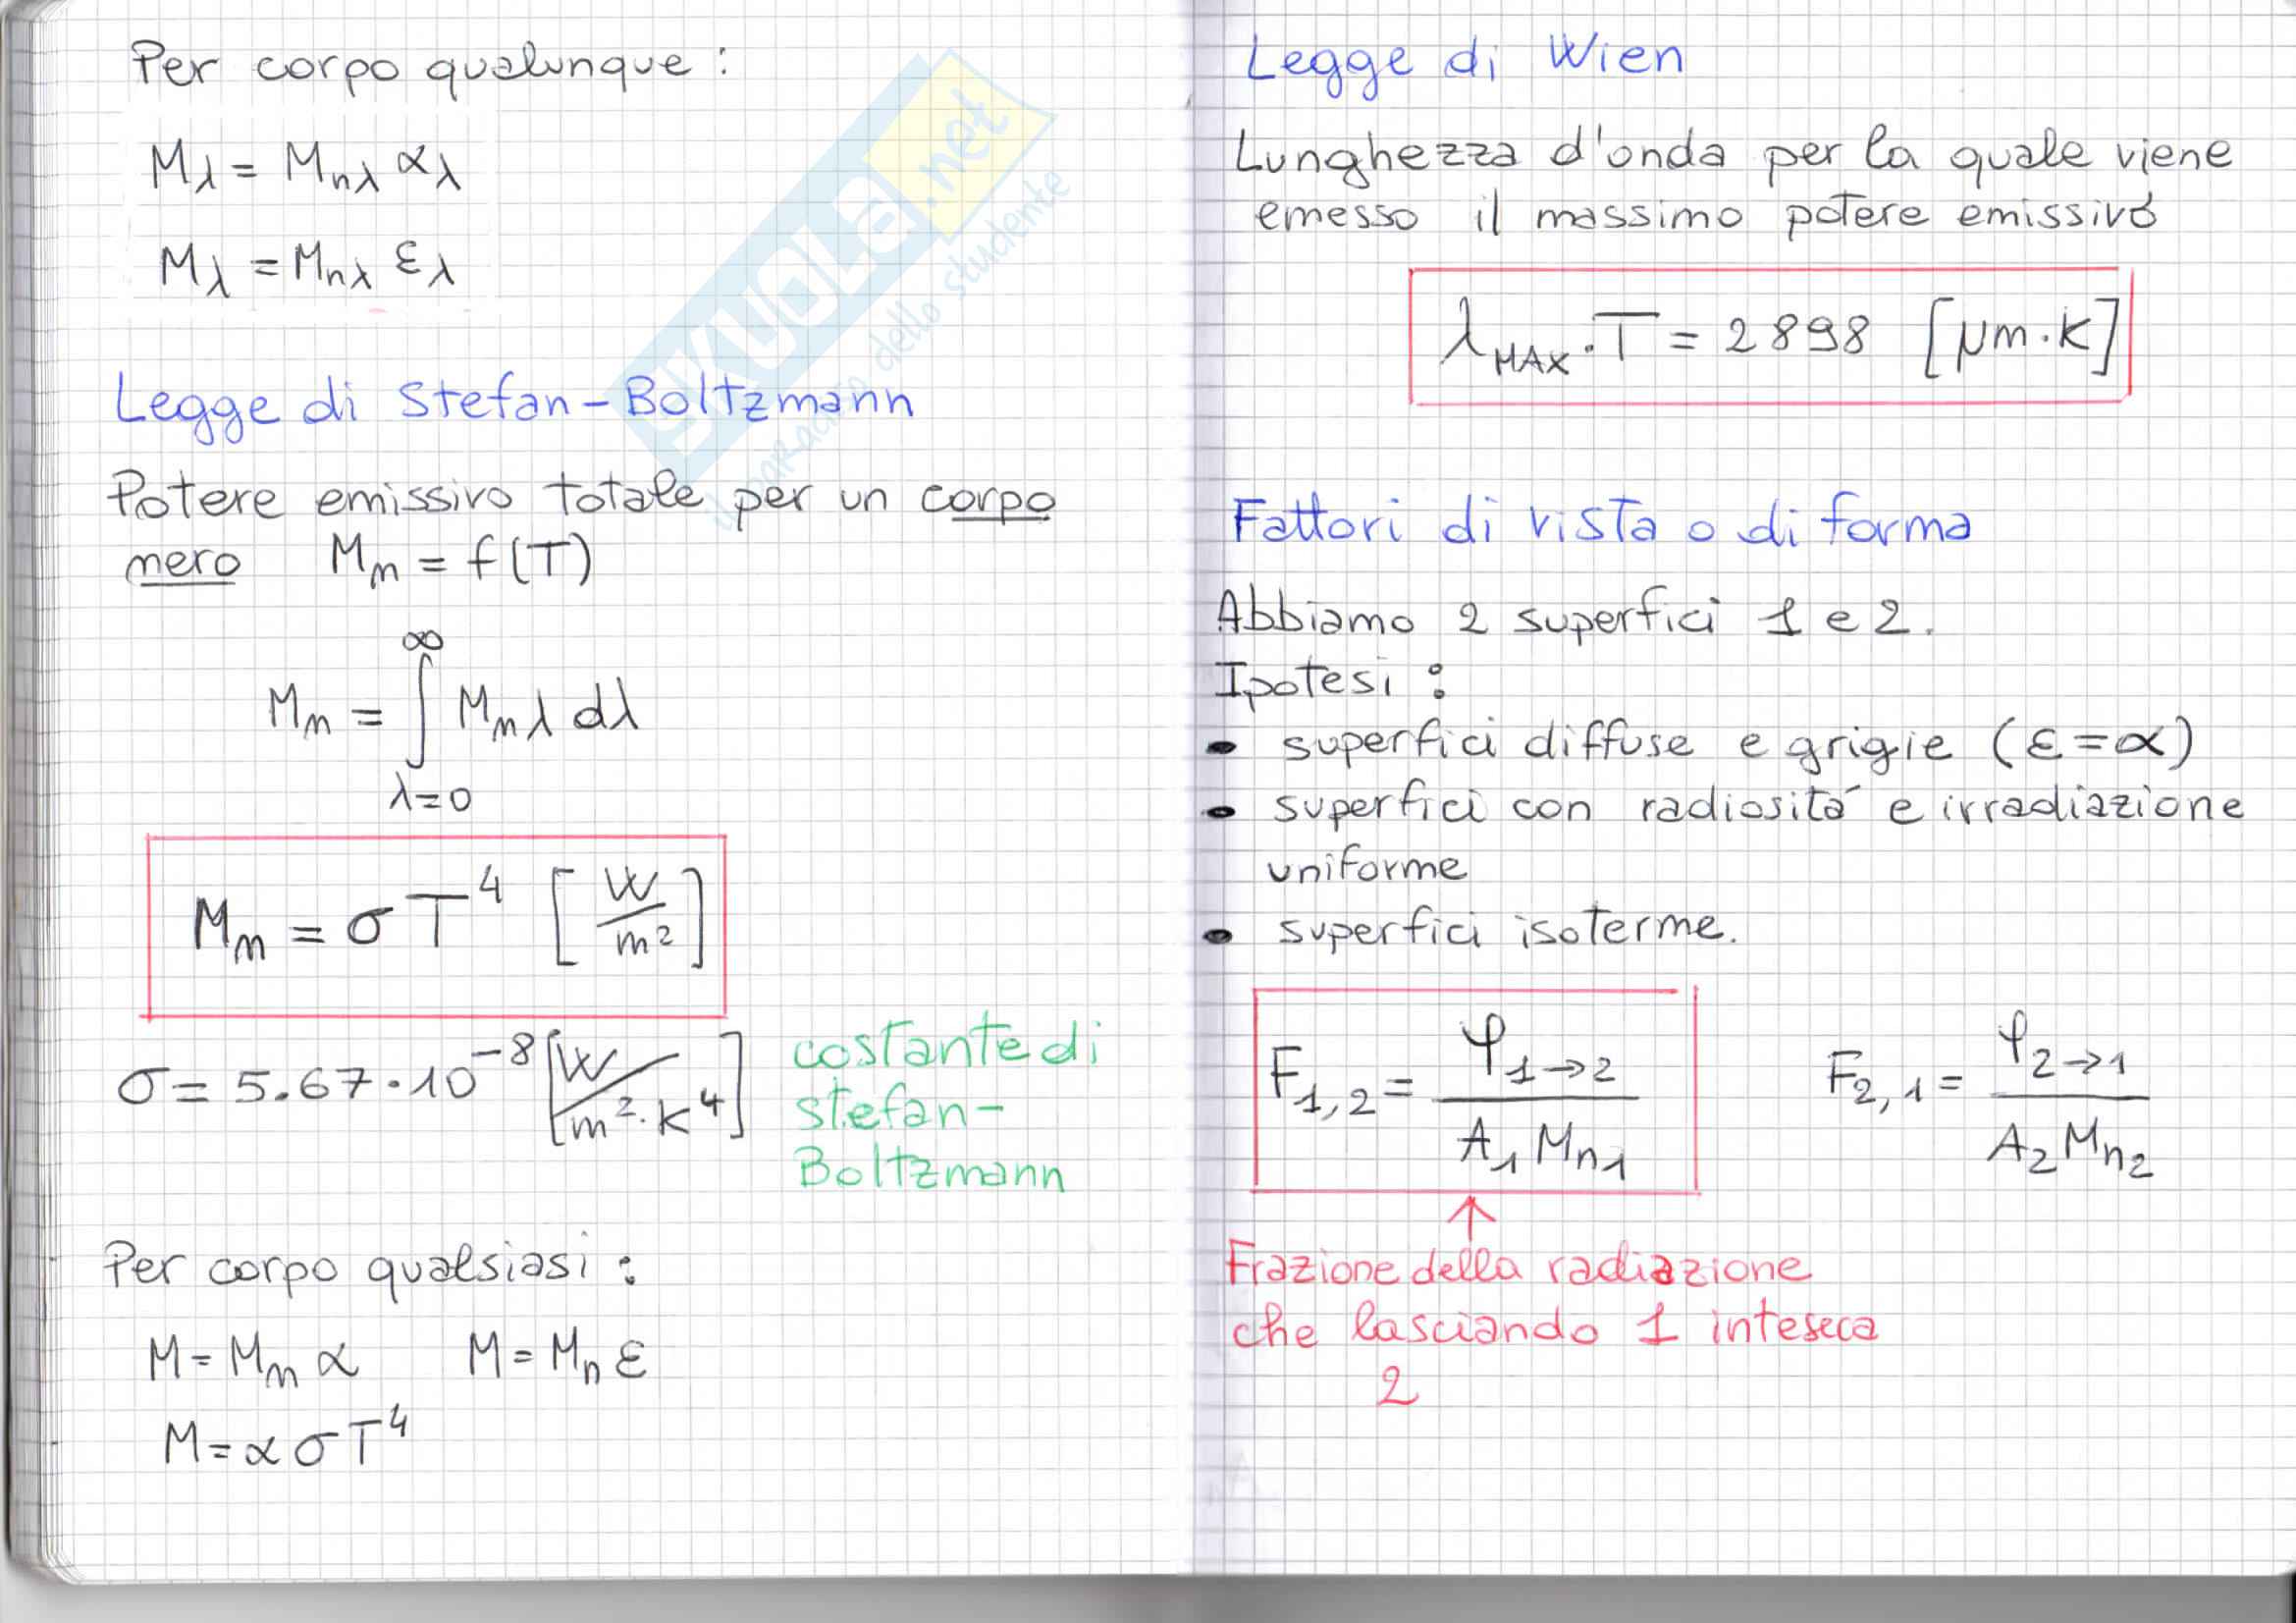 Per corpo qualunque:
Mλ = Mnλ αλ
Mλ = Mnλ ελ
Legge di Stefan-Boltzmann
Potere emissivo totale per un corpo
nero Mn = f(T)
∞
Mn = ∫ Mnλ dλ
λ=0
Mn = σ T⁴ [W/m²]
σ = 5.67·10⁻⁸ [W/m²·K⁴]
costante di
stefan-
Boltzmann
Per corpo qualsiasi:
M = Mn α M = Mn ε
M = α σ T⁴
SKUOLA.net
il paradiso dello studente
Legge di Wien
Lunghezza d'onda per la quale viene
emesso il massimo potere emissivo
λMAX · T = 2898 [μm·K]
Fattori di vista o di forma
Abbiamo 2 superfici 1 e 2.
Ipotesi:
• superfici diffuse e grigie (ε=α)
• superfici con radiosità e irradiazione
uniforme
• superfici isoterme.
F1,2 = φ1→2 / A1 Mn1 F2,1 = φ2→1 / A2 Mn2
↑
Frazione della radiazione
che lasciando 1 inteseca
2